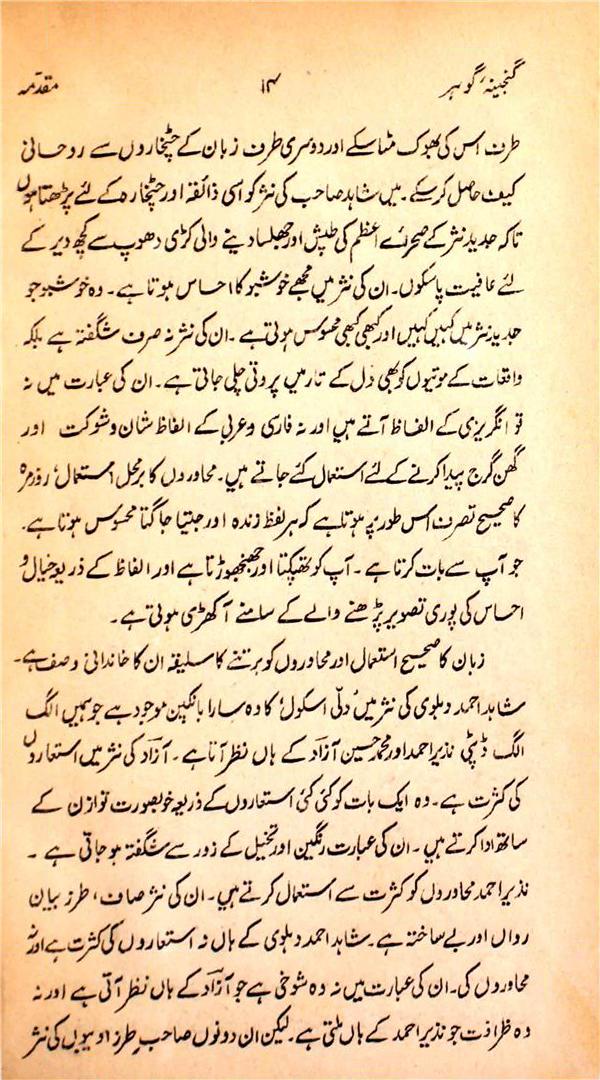 گنجینۂ گوہر ۱۴ مقدّمہ
طرف اس کی بھوک مٹا سکے اور دوسری طرف زبان کے چٹخاروں سے روحانی
کیف حاصل کر سکے۔ میں شاہد صاحب کی نثر کو اسی ذائقہ اور چٹخارہ کے لئے پڑھتا ہوں
تاکہ جدید نثر کے صحرائے اعظم کی طپش اور جھلسا دینے والی کڑی دھوپ سے کچھ دیر کے
لئے عافیت پا سکوں۔ ان کی نثر میں مجھے خوشبو کا احساس ہوتا ہے۔ وہ خوشبو جو
جدید نثر میں کہیں کہیں اور کبھی کبھی محسوس ہوتی ہے۔ ان کی نثر نہ صرف شگفتہ ہے بلکہ
واقعات کے موتیوں کو بھی دل کے تار میں پروتی چلی جاتی ہے۔ ان کی عبارت میں نہ
تو انگریزی کے الفاظ آتے ہیں اور نہ فارسی و عربی کے الفاظ شان و شوکت اور
گھن گرج پیدا کرنے کے لئے استعمال کئے جاتے ہیں۔ محاوروں کا برمحل استعمال، روزمرہ
کا صحیح تصرف اس طور پر ہوتا ہے کہ ہر لفظ زندہ اور جیتا جاگتا محسوس ہوتا ہے۔
جو آپ سے بات کرتا ہے۔ آپ کو تھپکتا اور جھنجھوڑتا ہے اور الفاظ کے ذریعہ خیال و
احساس کی پوری تصویر پڑھنے والے کے سامنے آ کھڑی ہوتی ہے۔
زبان کا صحیح استعمال اور محاوروں کو برتنے کا سلیقہ ان کا خاندانی وصف ہے۔
شاہد احمد دہلوی کی نثر میں ’دلّی اسکول‘ کا وہ سارا بانکپن موجود ہے جو ہمیں الگ
الگ ڈپٹی نذیر احمد اور محمد حسین آزاد کے ہاں نظر آتا ہے۔ آزاد کی نثر میں استعاروں
کی کثرت ہے۔ وہ ایک بات کو کئی کئی استعاروں کے ذریعہ خوبصورت توازن کے
ساتھ ادا کرتے ہیں۔ ان کی عبارت رنگین اور تخیل کے زور سے شگفتہ ہو جاتی ہے۔
نذیر احمد محاوروں کو کثرت سے استعمال کرتے ہیں۔ ان کی نثر صاف، طرز بیان
رواں اور بے ساختہ ہے۔ شاہد احمد دہلوی کے ہاں نہ استعاروں کی کثرت ہے اور نہ
محاوروں کی۔ ان کی عبارت میں نہ وہ شوخی ہے جو آزاد کے ہاں نظر آتی ہے اور نہ
وہ ظرافت جو نذیر احمد کے ہاں ملتی ہے۔ لیکن ان دونوں صاحبِ طرز ادیبوں کی نثر